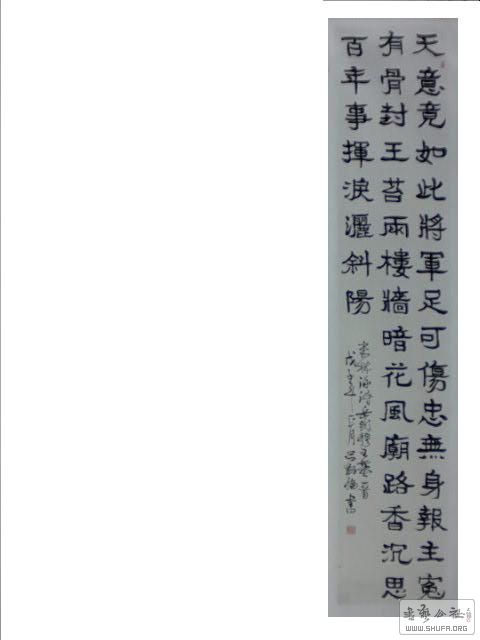 天意竟如此將軍足可傷忠無身報主冤
有骨封王苔雨樓牆暗花風廟路香沉思
百年事揮淚灑斜陽
書
WWW.SHUFA.ORG